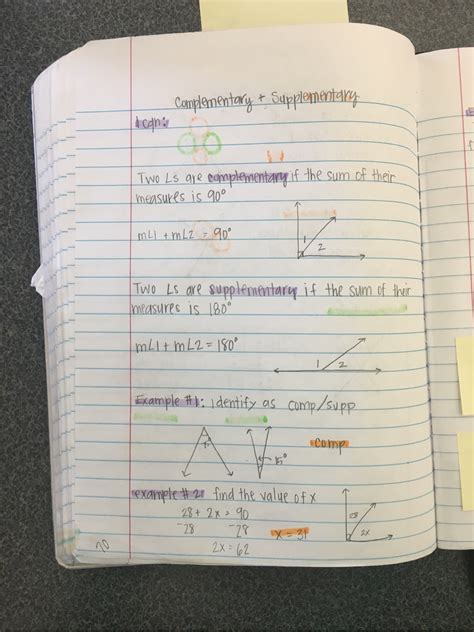 Complementary + Supplementary
I can:
Two ∠s are complementary if the sum of their
measures is 90°
m∠1 + m∠2 = 90°
1
2
Two ∠s are supplementary if the sum of their
measures is 180°
m∠1 + m∠2 = 180°
1 2
Example #1: identify as comp/supp
15°
comp
example #2: find the value of x
28 + 2x = 90
-28 -28
2x = 62
x = 31
28
2x